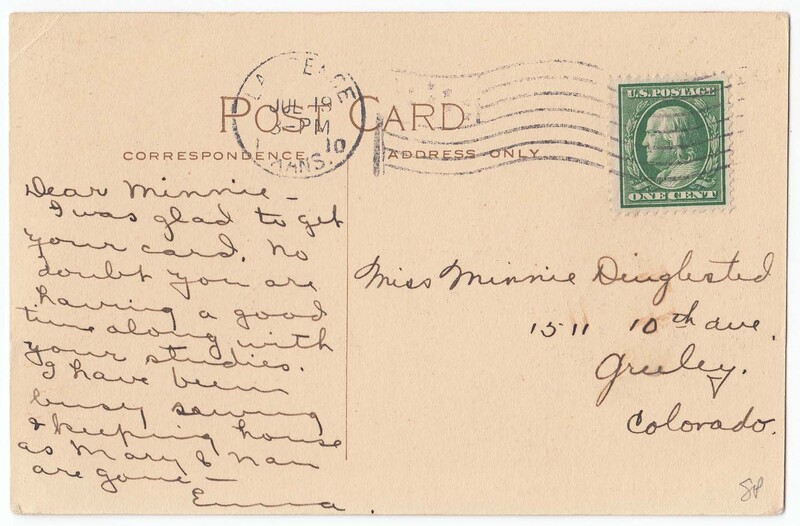 POST CARD
CORRESPONDENCE
ADDRESS ONLY
LAWRENCE
JUL 19
3-PM
1910
KANS.
U.S. POSTAGE
ONE CENT
Dear Minnie—
I was glad to get
your card. No
doubt you are
having a good
time along with
your studies.
I have been
busy sewing
& keeping house
as Mary & Nan
are gone—
Emma.
Miss Minnie Dinglested
1511 10th ave.
Greeley.
Colorado.